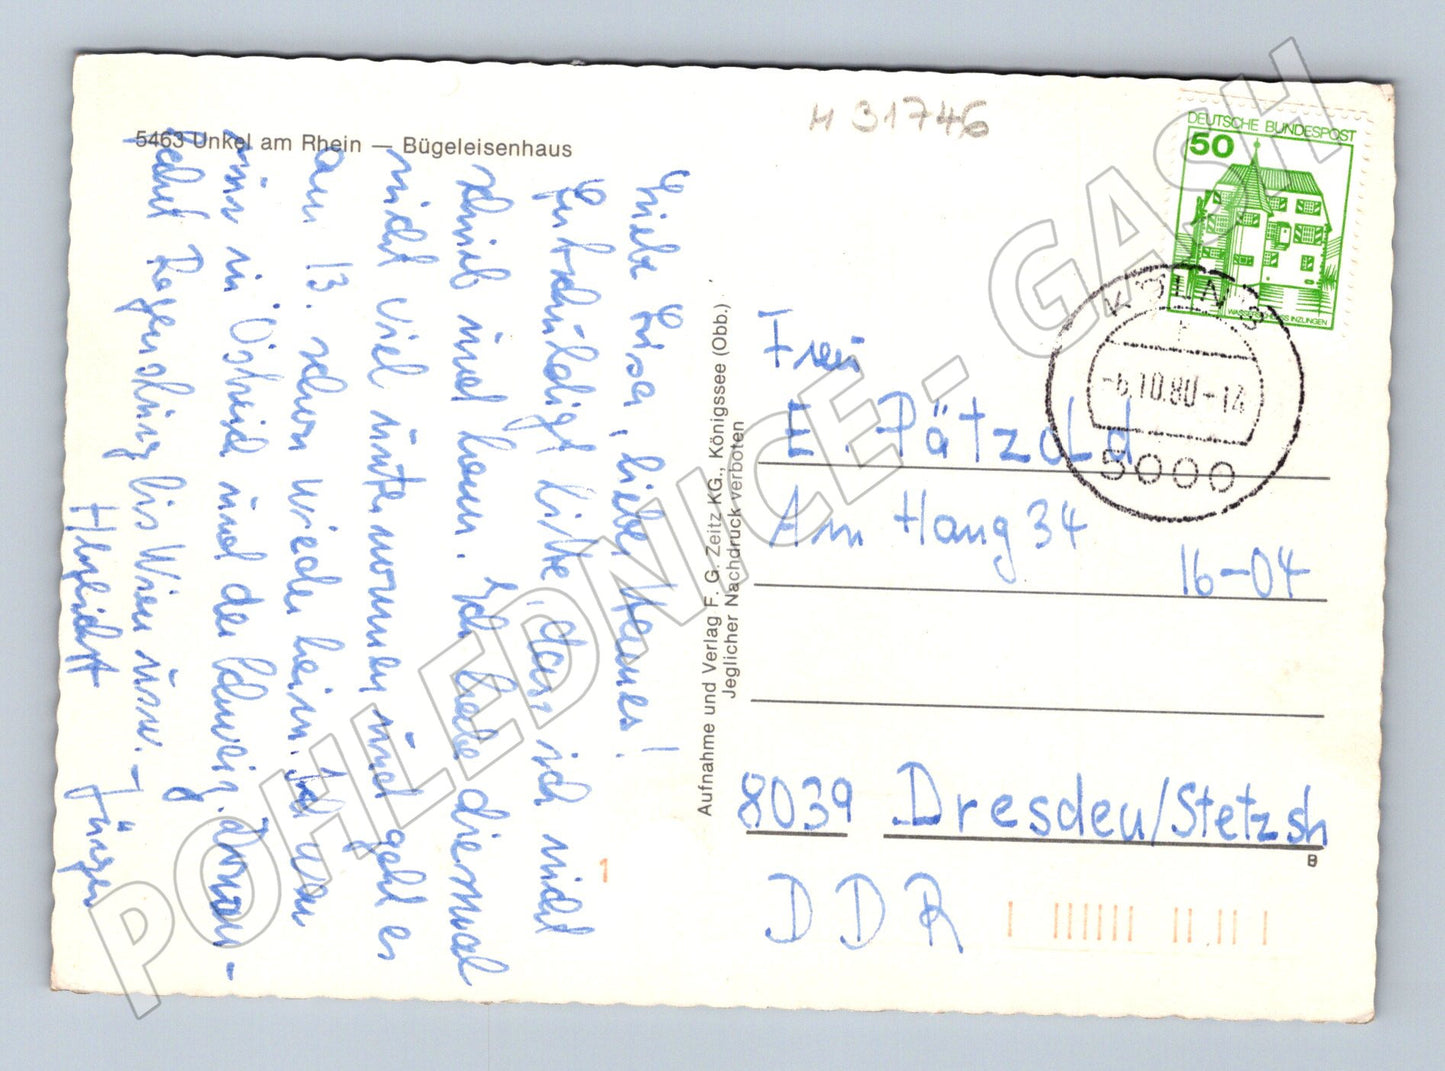 5463 Unkel am Rhein — Bügeleisenhaus
H 31746
DEUTSCHE BUNDESPOST
50
WASSERSCHLOSS INZLINGEN
KÖLN
-6.10.80-12
5000
Liebe Lisa, liebe Hannes!
Entschuldigt bitte, dass ich nicht
schrieb und kam. Ich habe diesmal
nicht viel unternommen und geht es
am 13. schon wieder heim. Ich war
nur in Östreich und der Schweiz. Donau-
Regensburg bis Wien usw. –
Herzlichst Jürgen
Aufnahme und Verlag F. G. Zeitz KG., Königssee (Obb.)
Jeglicher Nachdruck verboten
Frau
E. Pätzold
Am Hang 34
16-04
8039 Dresden/Stetzsh
B
DDR
1
POHLEDNICE - GASH